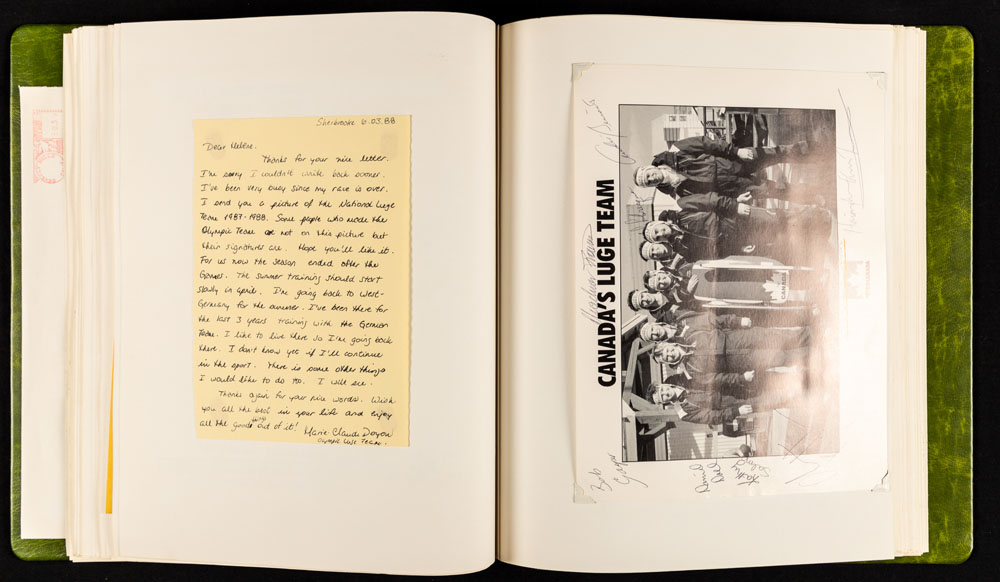 Sherbrooke 6.03.88
Dear Helène.
Thanks for your nice letter.
I'm sorry I couldn't write back sooner.
I've been very busy since my race is over.
I send you a picture of the National Luge
Team 1987-1988. Some people who made the
Olympic Team are not on this picture but
their signatures are. Hope you'll like it.
For us now the season ended after the
Games. The summer training should start
slowly in april. I'm going back to West-
Germany for the summer. I've been there for
the last 3 years training with the German
Team. I like to live there so I'm going back
there. I don't know yet if I'll continue
in the sport. There is some other things
I would like to do to. I will see.
Thanks again for your nice words. Wish
you all the best in your life and enjoy
all the goods out of it!
Marie-Claude Doyon
Olympic Luge Team.
CANADA'S LUGE TEAM
CANADA
Bob
David
Kathy